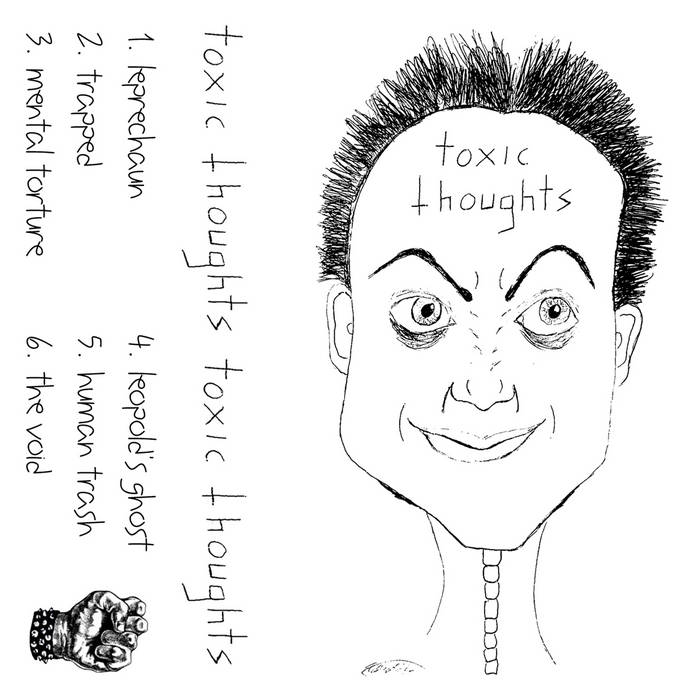 toxic
thoughts
toxic thoughts toxic thoughts
1. leprechaun
2. trapped
3. mental torture
4. leopold's ghost
5. human trash
6. the void